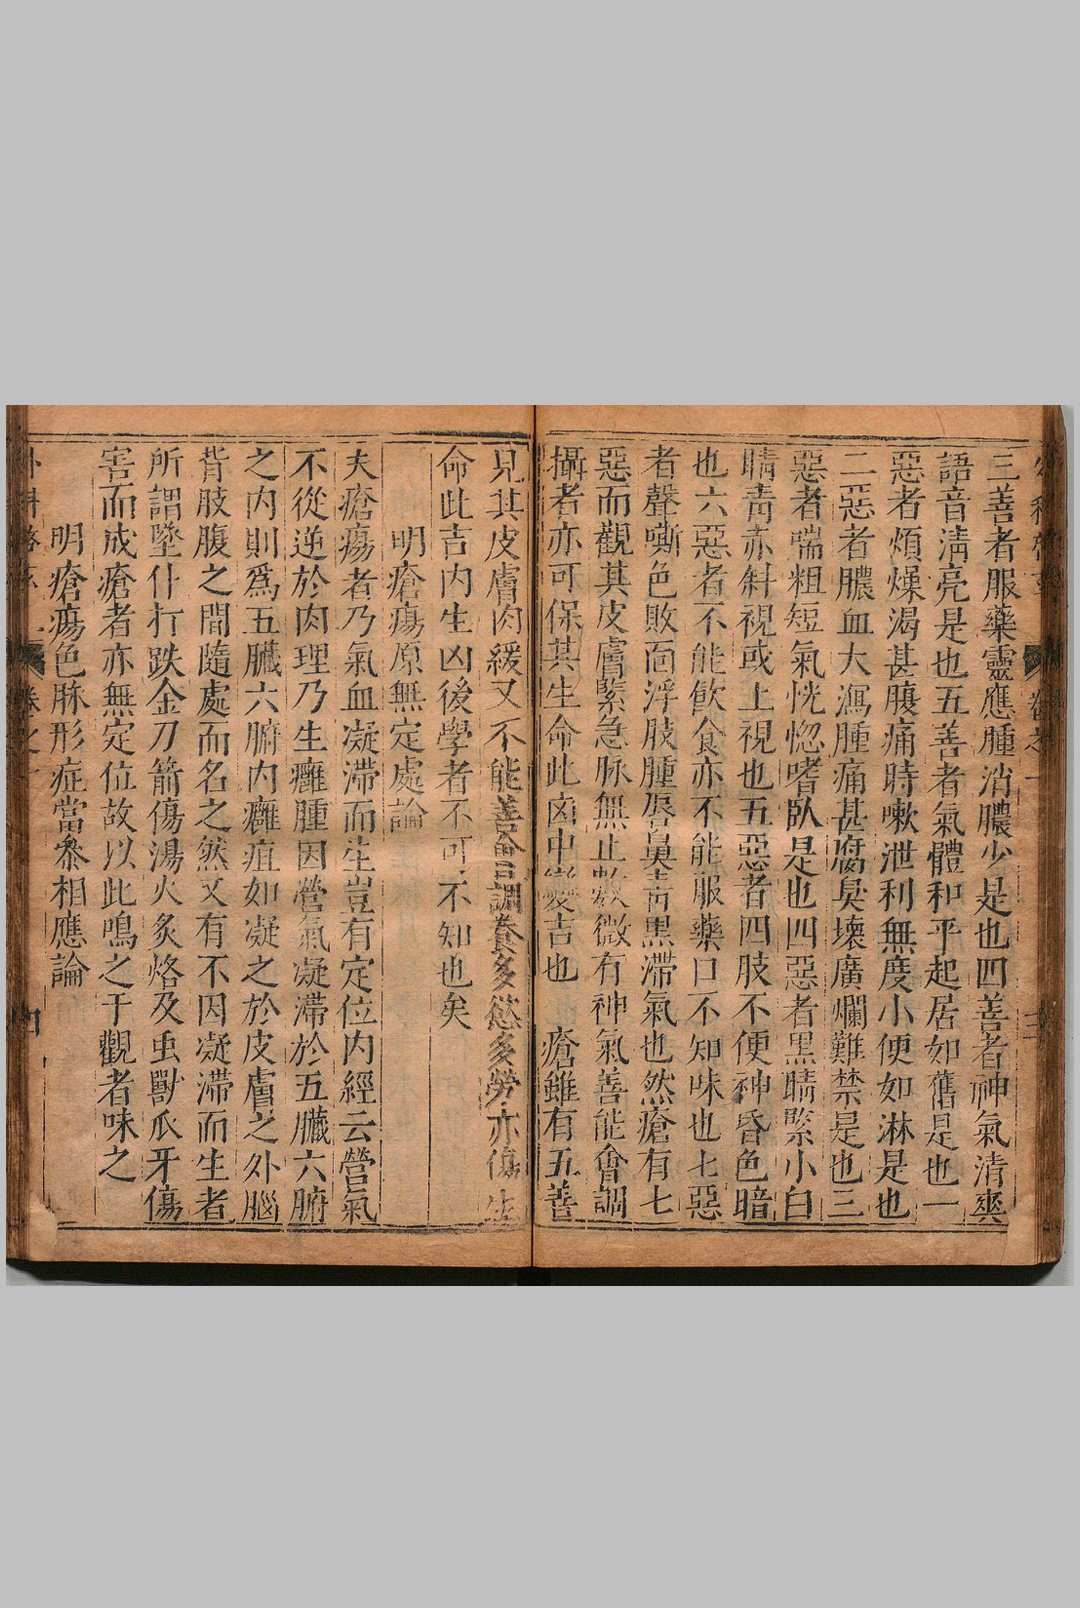 三善者服藥靈應腫消膿少是也四善者神氣清爽
語音清亮是也五善者氣體和平起居如舊是也一
惡者煩燥渴甚腹痛時嗽泄利無度小便如淋是也
二惡者膿血大瀉腫痛甚腐臭壞廣爛難禁是也三
惡者喘粗短氣恍惚嗜臥是也四惡者黑睛緊小白
睛青赤斜視或上視也五惡者四肢不便神昏色暗
也六惡者不能飲食亦不能服藥口不知味也七惡
者聲嘶色敗面浮肢腫唇鼻青黑滯氣也然瘡有七
惡而觀其皮膚緊急脉無止數微有神氣善能會調
攝者亦可保其生命此凶中變吉也　瘡雖有五善
見其皮膚肉緩又不能善會調養多慾多勞亦傷生
命此吉內生凶後學者不可不知也矣
明瘡瘍原無定處論
夫瘡瘍者乃氣血凝滞而生豈有定位內經云營氣
不從逆於肉理乃生癰腫因營氣凝滞於五臟六腑
之內則爲五臟六腑內癰疽如凝之於皮膚之外腦
背肢腹之間隨處而名之然又有不因凝滞而生者
所謂墜仆打跌金刀箭傷湯火炙烙及虫獸爪牙傷
害而成瘡者亦無定位故以此鳴之于觀者味之
明瘡瘍色脉形症當叅相應論
卷之一
四